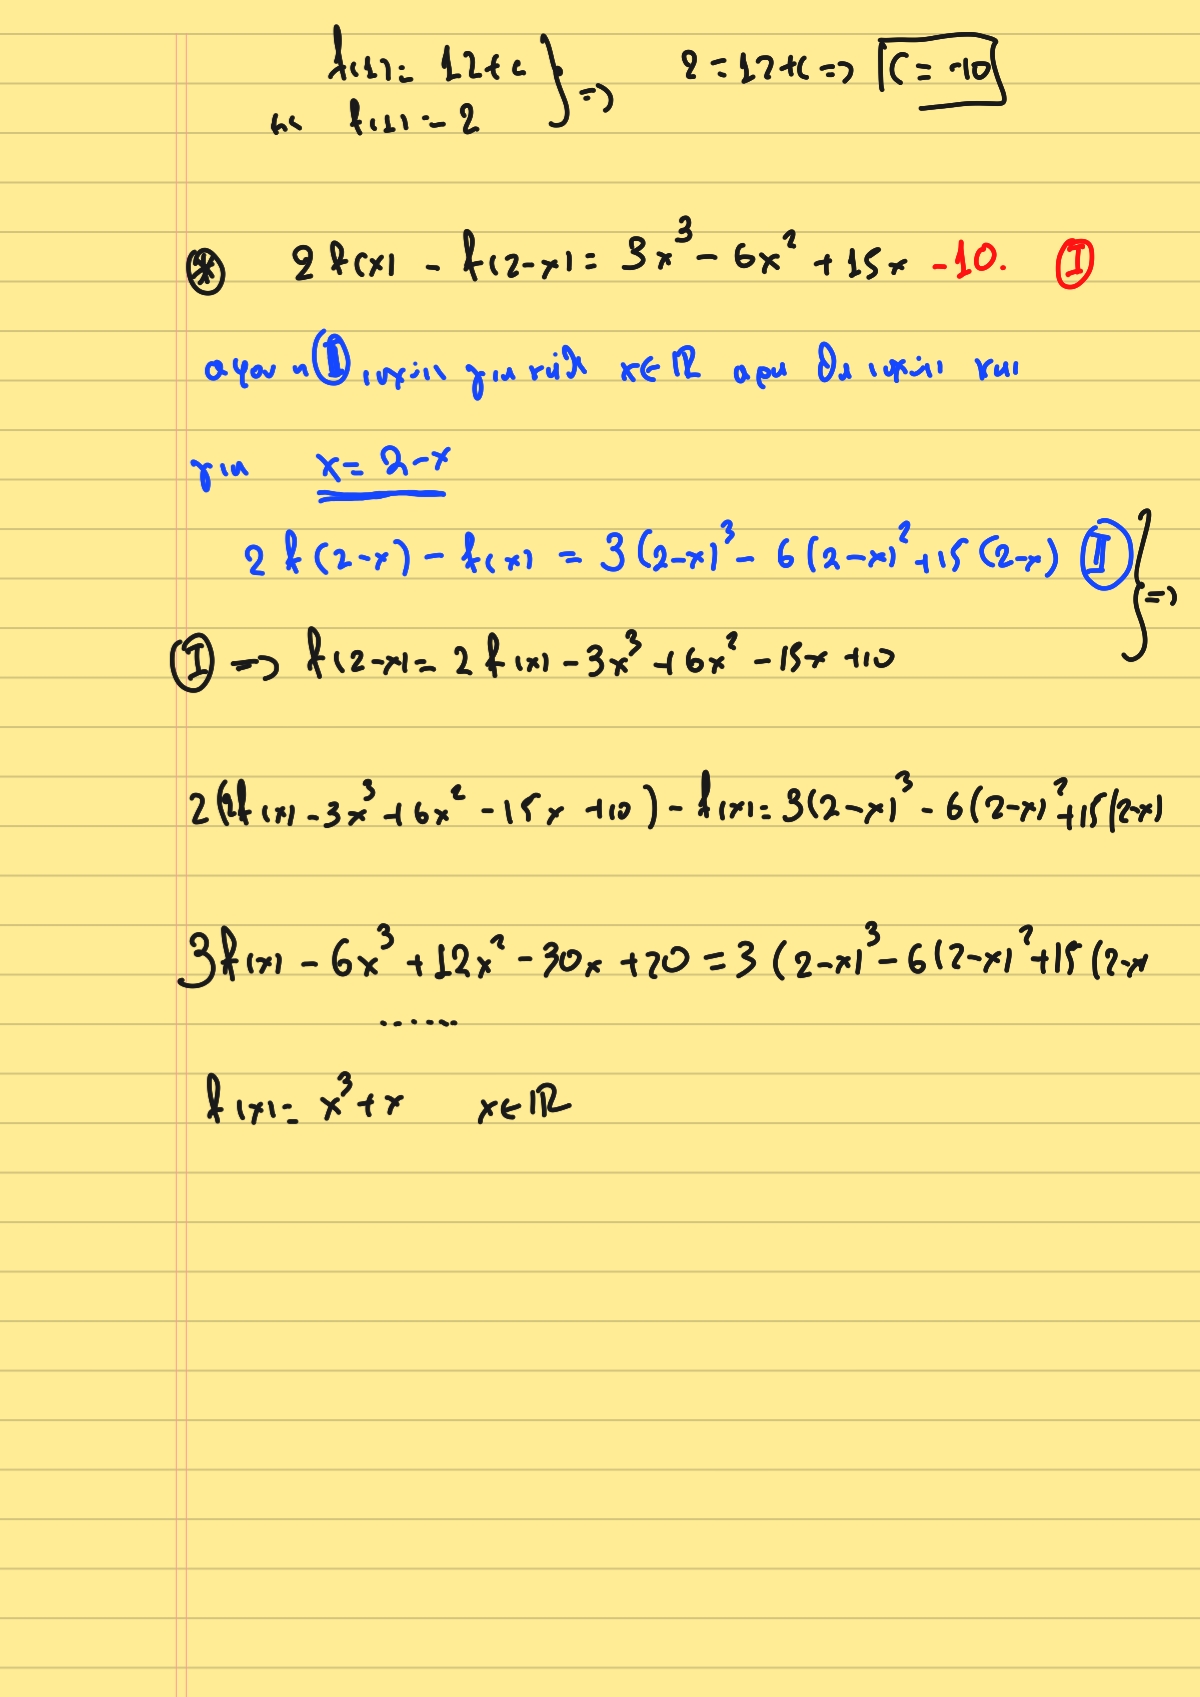 f(1) = 12+c } => 2 = 12+c => C = -10
και f(1) = 2
⊛ 2f(x) - f(2-x) = 3x³ - 6x² + 15x - 10. (I)
αφου η (I) ισχύει για κάθε x∈ℝ αρα θα ισχύει και
για x = 2-x
2f(2-x) - f(x) = 3(2-x)³ - 6(2-x)² + 15(2-x) (II) } =>
(I) => f(2-x) = 2f(x) - 3x³ + 6x² - 15x + 10
2(2f(x) - 3x³ + 6x² - 15x + 10) - f(x) = 3(2-x)³ - 6(2-x)² + 15(2-x)
3f(x) - 6x³ + 12x² - 30x + 20 = 3(2-x)³ - 6(2-x)² + 15(2-x
......
f(x) = x³ + x x∈ℝ